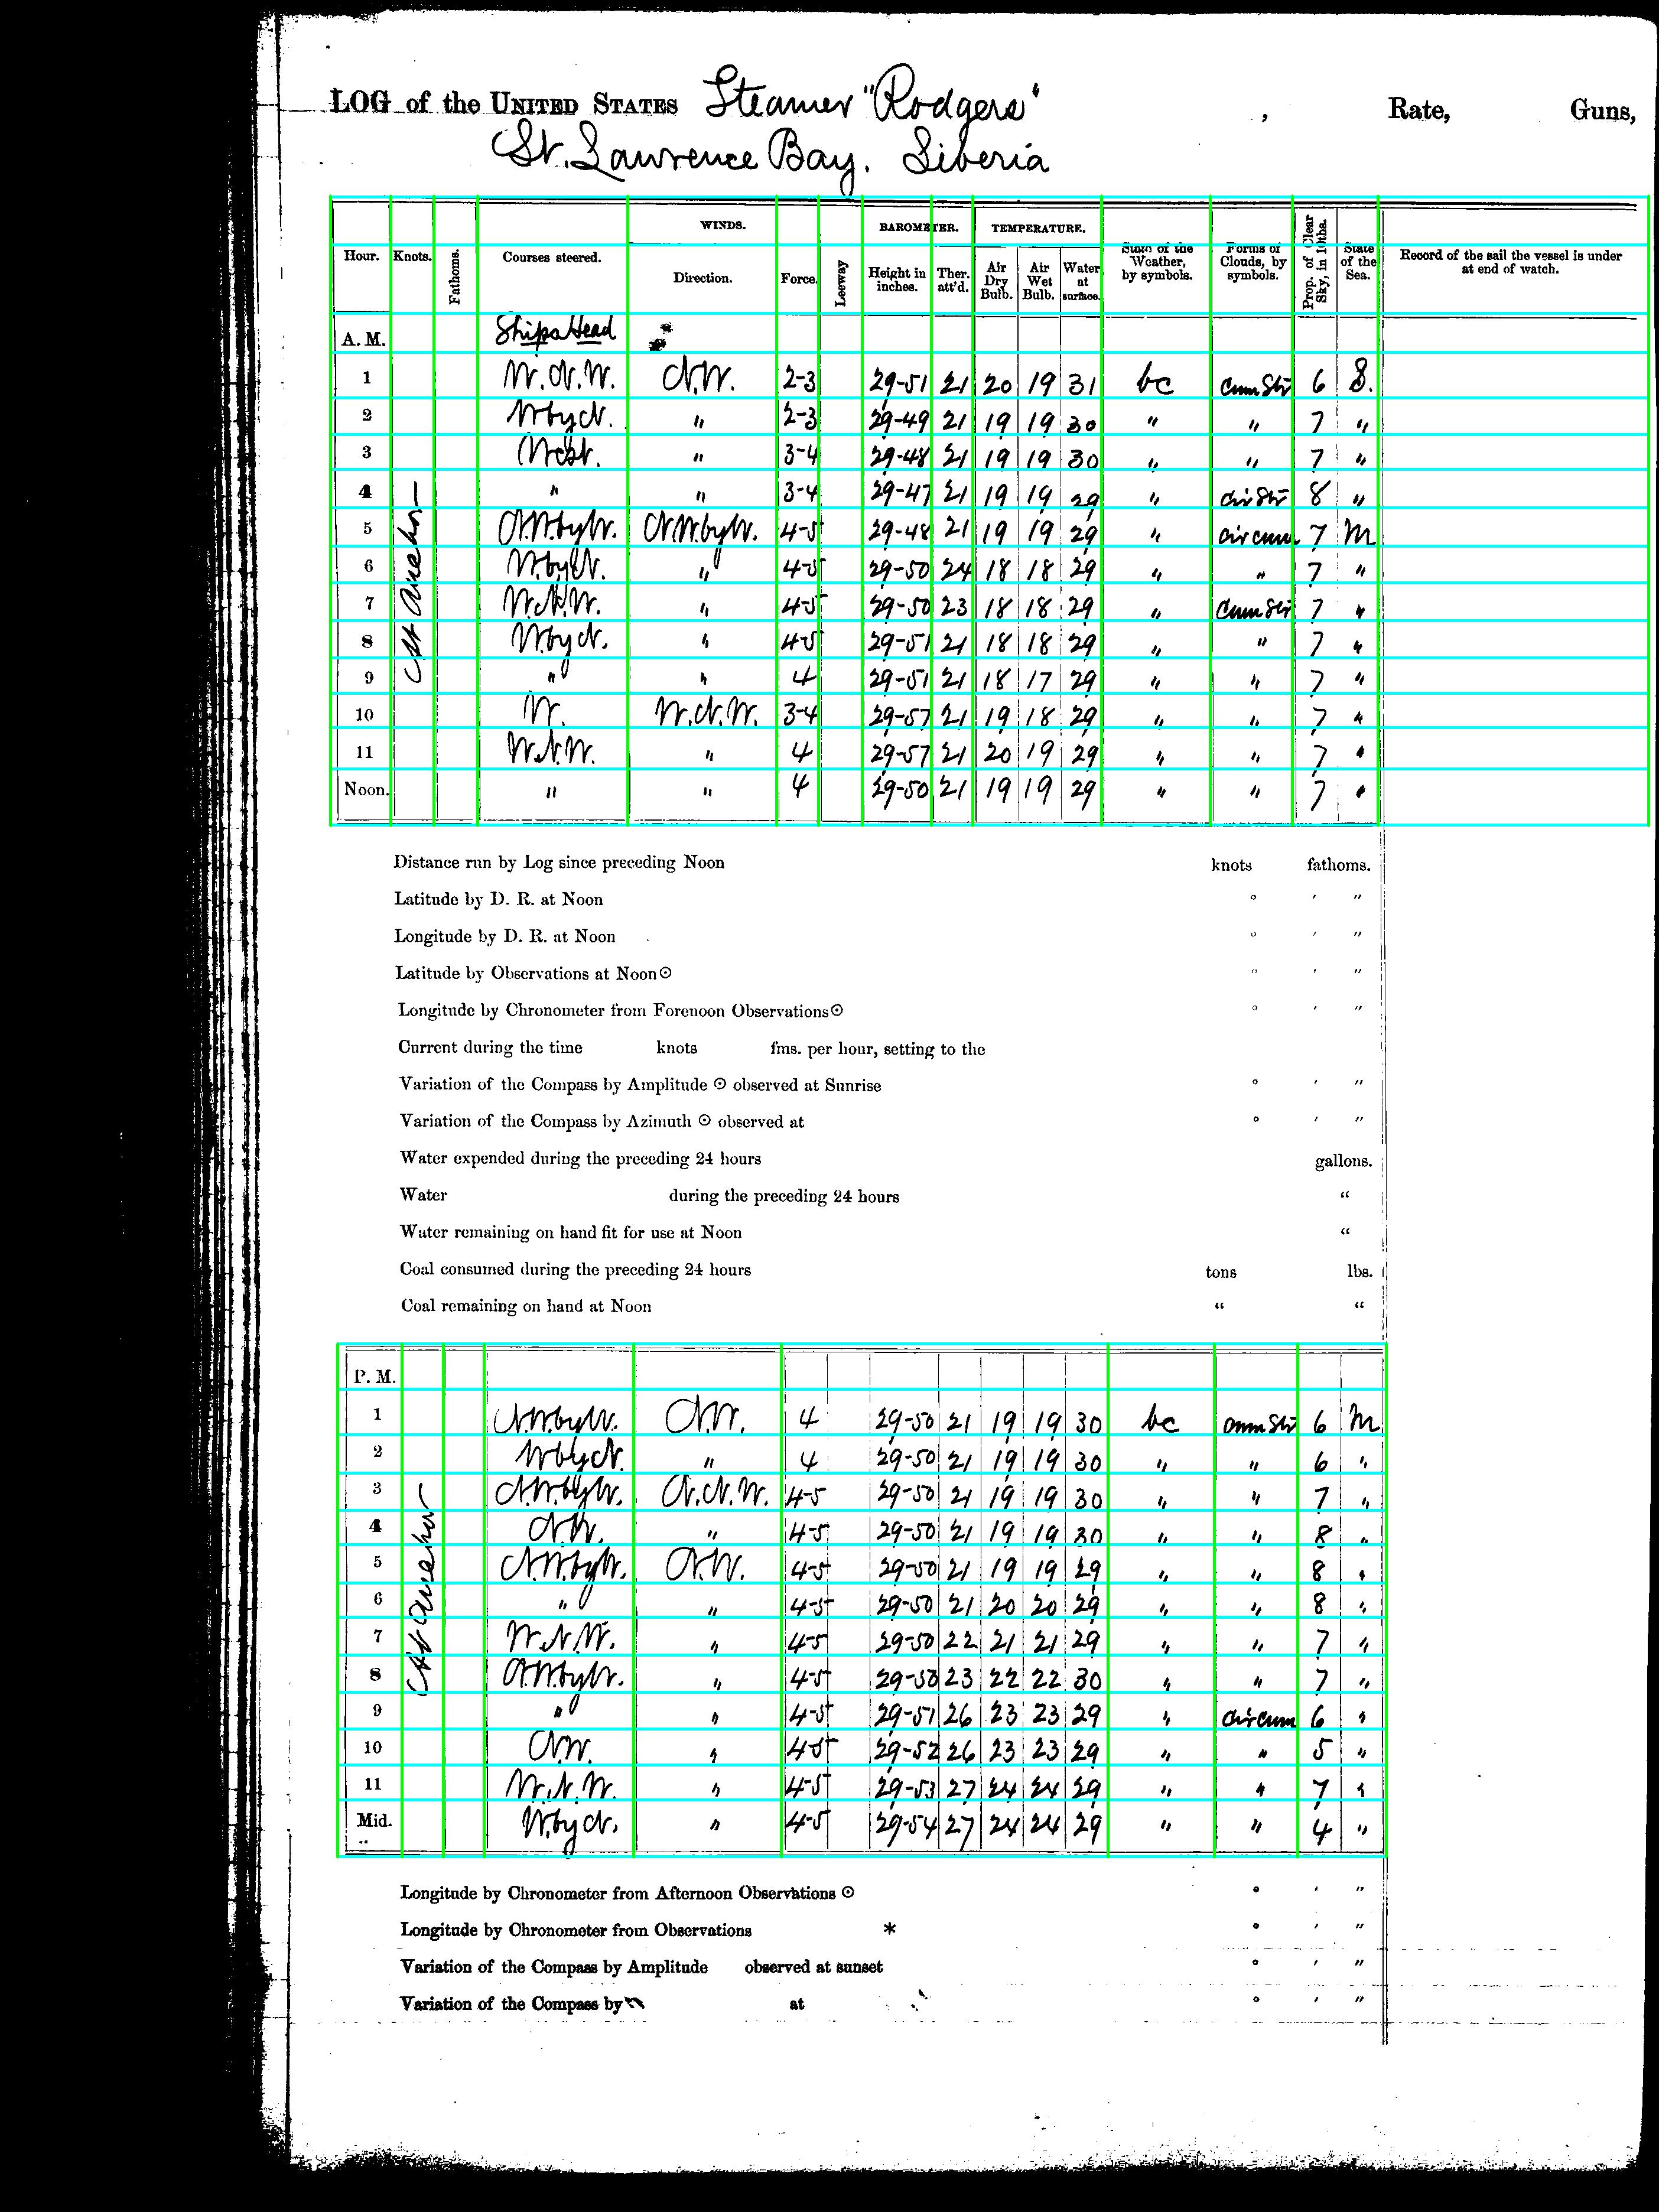 LOG of the UNITED STATES Steamer "Rodgers" , Rate, Guns,
St. Lawrence Bay. Siberia
WINDS. BAROMETER. TEMPERATURE.
Hour. Knots. Fathoms. Courses steered. Direction. Force. Leeway Height in inches. Ther. att'd. Air Dry Bulb. Air Wet Bulb. Water at surface. State of the Weather, by symbols. Forms of Clouds, by symbols. Prop. of Clear Sky, in 10ths. State of the Sea. Record of the sail the vessel is under at end of watch.
A. M. Ships Head
At Anchor
1 W.N.W. N.W. 2-3 29-51 21 20 19 31 bc Cum Str 6 S.
2 W by N. " 2-3 29-49 21 19 19 30 " " 7 "
3 West. " 3-4 29-48 21 19 19 30 " " 7 "
4 " " 3-4 29-47 21 19 19 29 " Cir Str 8 "
5 N.W. by W. N.W. by W. 4-5 29-48 21 19 19 29 " Cir cum. 7 M
6 W. by N. " 4-5 29-50 24 18 18 29 " " 7 "
7 W.N.W. " 4-5 29-50 23 18 18 29 " Cum Str 7 "
8 W. by N. " 4-5 29-51 21 18 18 29 " " 7 "
9 " " 4 29-51 21 18 17 29 " " 7 "
10 W. W.N.W. 3-4 29-57 21 19 18 29 " " 7 "
11 W.N.W. " 4 29-57 21 20 19 29 " " 7 "
Noon. " " 4 29-50 21 19 19 29 " " 7 "
Distance run by Log since preceding Noon knots fathoms.
Latitude by D. R. at Noon ° ′ ″
Longitude by D. R. at Noon ° ′ ″
Latitude by Observations at Noon ☉ ° ′ ″
Longitude by Chronometer from Forenoon Observations ☉ ° ′ ″
Current during the time knots fms. per hour, setting to the
Variation of the Compass by Amplitude ☉ observed at Sunrise ° ′ ″
Variation of the Compass by Azimuth ☉ observed at ° ′ ″
Water expended during the preceding 24 hours gallons.
Water during the preceding 24 hours “
Water remaining on hand fit for use at Noon “
Coal consumed during the preceding 24 hours tons lbs.
Coal remaining on hand at Noon “ “
P. M.
At Anchor
1 N.W. by W. N.W. 4 29-50 21 19 19 30 bc Cum Str 6 M
2 W by N. " 4 29-50 21 19 19 30 " " 6 "
3 N.W. by W. N.N.W. 4-5 29-50 21 19 19 30 " " 7 "
4 N.W. " 4-5 29-50 21 19 19 30 " " 8 "
5 N.W. by W. N.W. 4-5 29-50 21 19 19 29 " " 8 "
6 " " 4-5 29-50 21 20 20 29 " " 8 "
7 W.N.W. " 4-5 29-50 22 21 21 29 " " 7 "
8 N.W. by W. " 4-5 29-50 23 22 22 30 " " 7 "
9 " " 4-5 29-51 26 23 23 29 " Cir cum 6 "
10 N.W. " 4-5 29-52 26 23 23 29 " " 5 "
11 W.N.W. " 4-5 29-53 27 24 24 29 " " 7 "
Mid. W. by N. " 4-5 29-54 27 24 24 29 " " 4 "
Longitude by Chronometer from Afternoon Observations ☉ ° ′ ″
Longitude by Chronometer from Observations * ° ′ ″
Variation of the Compass by Amplitude observed at sunset ° ′ ″
Variation of the Compass by at ° ′ ″